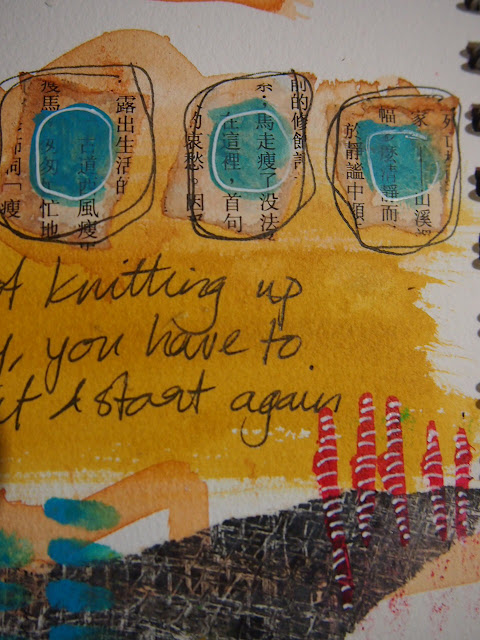 露出生活的
古道西風瘦
瘦馬 匆忙地
詞「瘦
前的修飾
：馬走瘦了没法
在這裡，首句
哀愁。因
家 山溪
幅 麼清靜而
於靜謐中
knitting up
, you have to
& start again